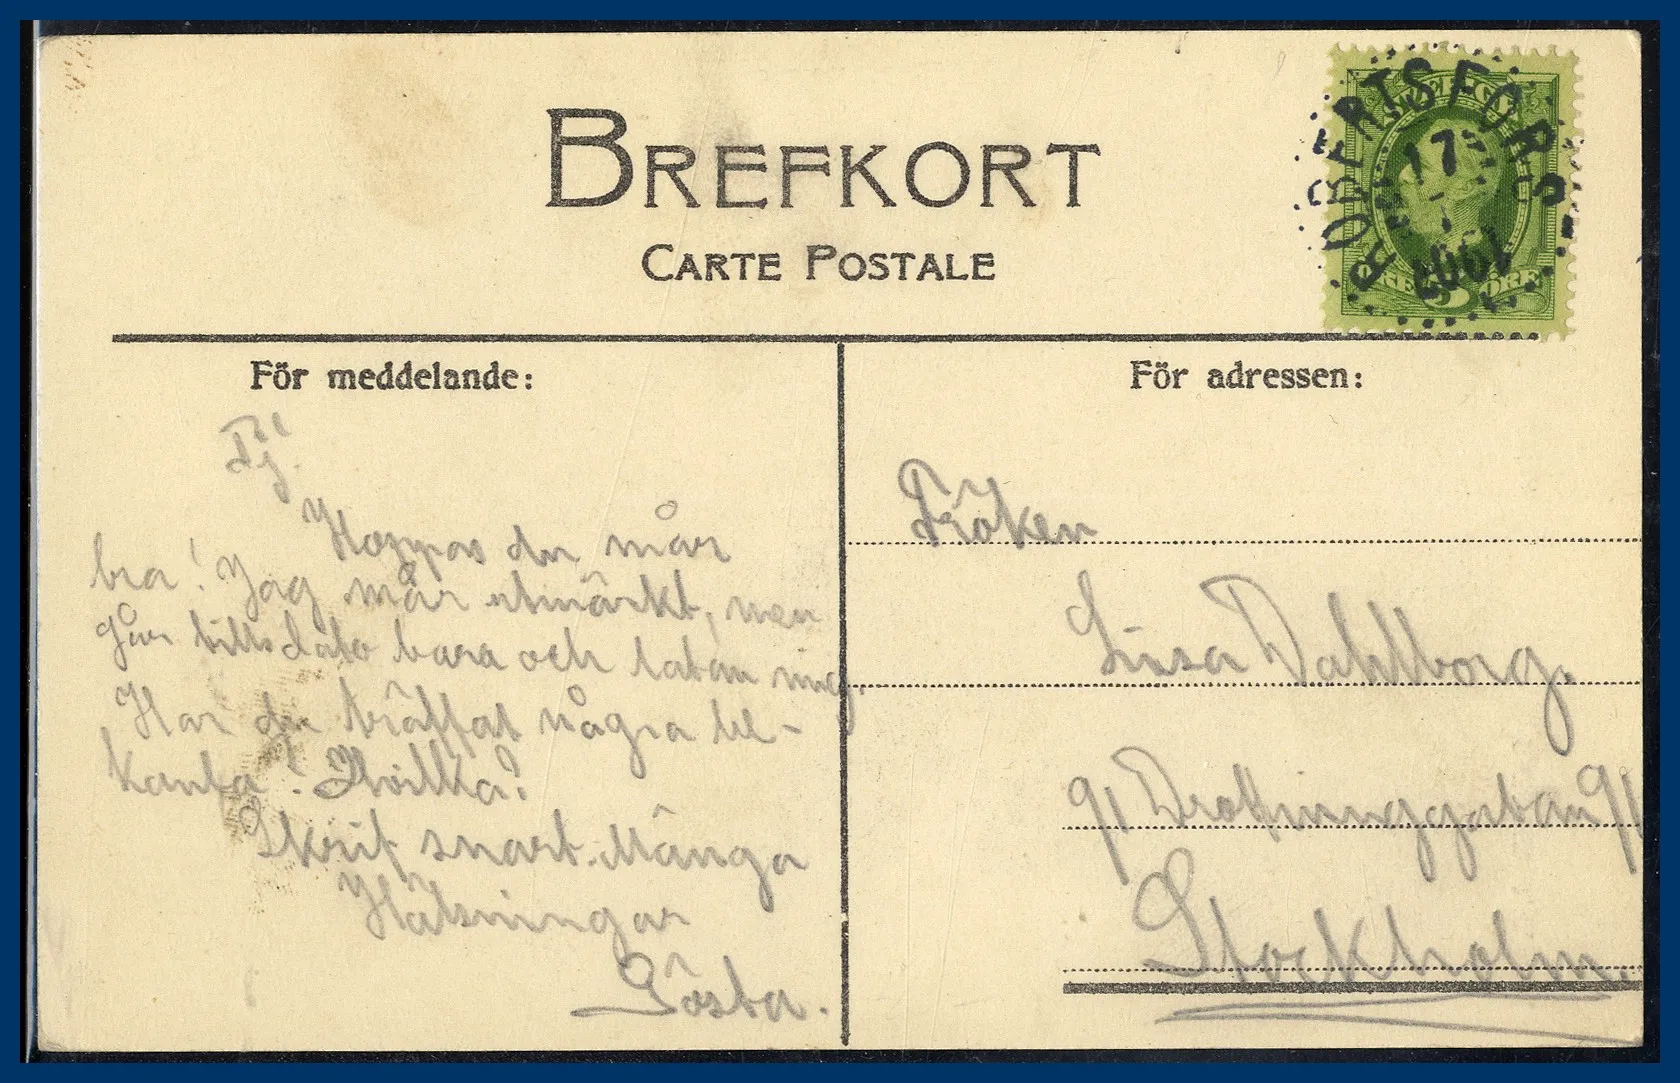 BREFKORT
CARTE POSTALE
ROBERTSFORS
17
1907
SVERIGE
ÖRE 5 ÖRE
För meddelande:
Hoppas du mår
bra! Jag mår utmärkt, men
går bara och latar mig.
Har du träffat några be-
kanta? Hvilka?
Skrif snart. Många
Hälsningar
Gösta.
För adressen:
Fröken
Lisa Dahlborg.
91 Drottninggatan 91
Stockholm.